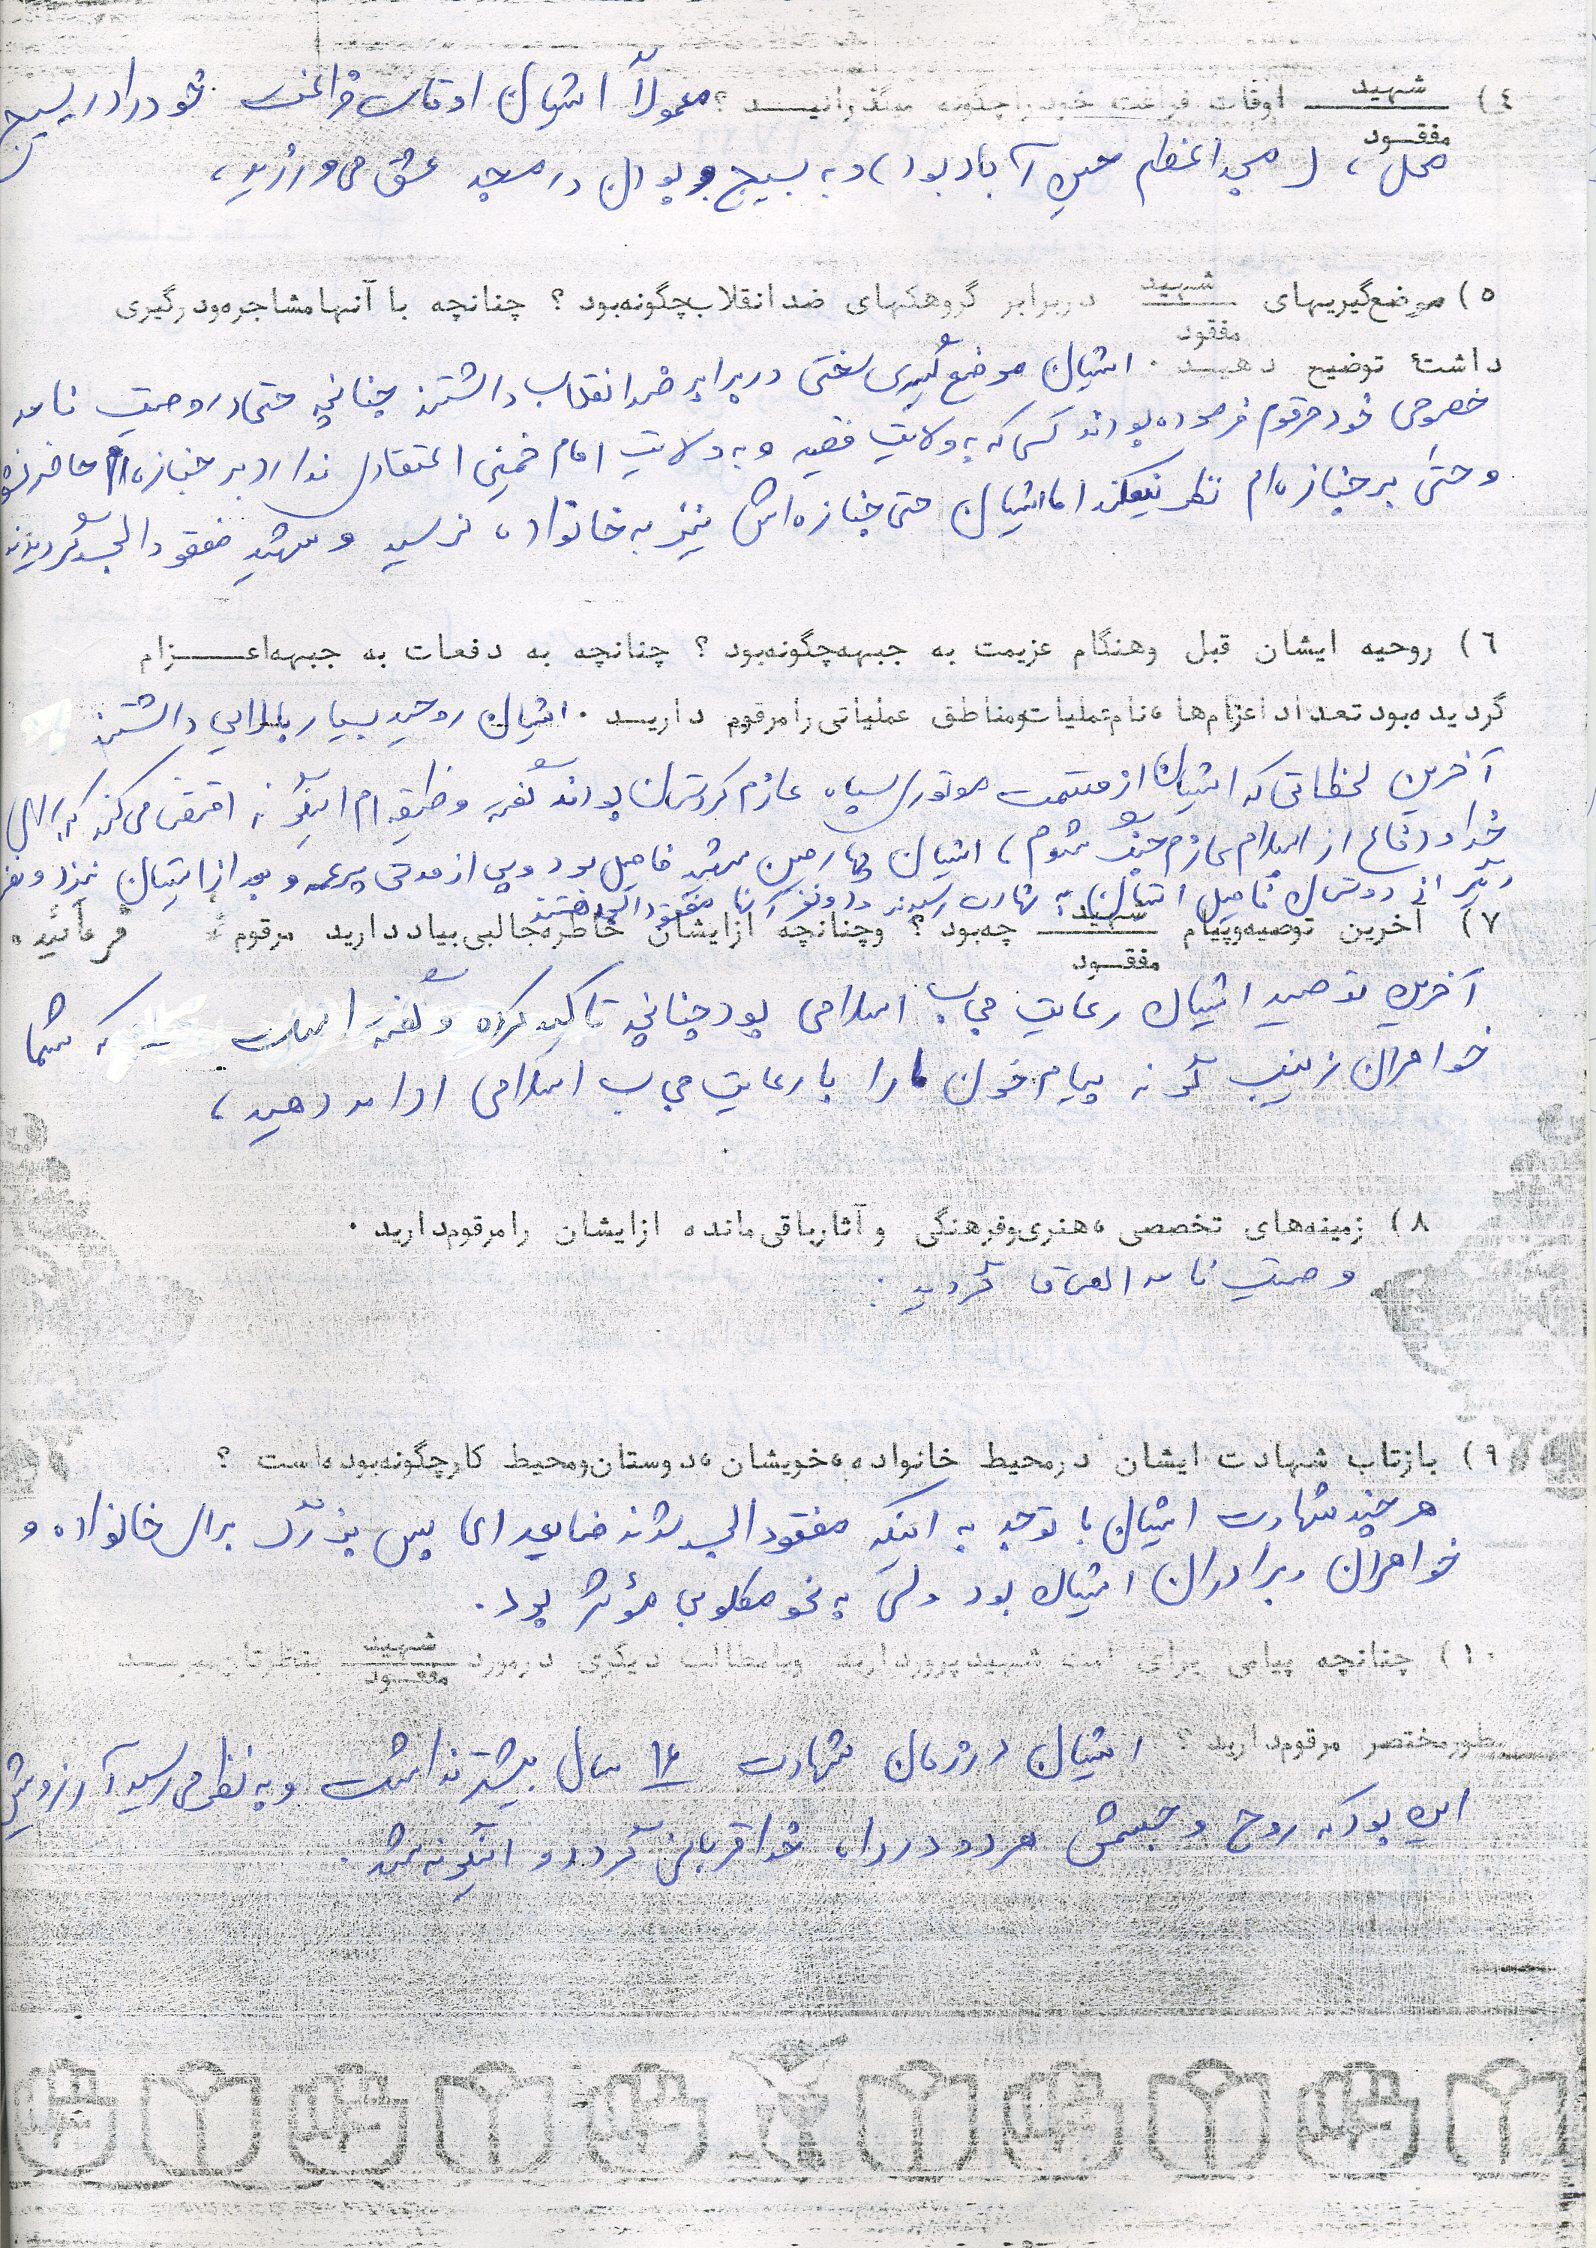 ٤) شهید/مفقود اوقات فراغت خود را چگونه میگذرانید؟ معمولاً ایشان اوقات فراغت خود را در بسیج
محل، (مسجد اعظم حسین آباد بود) و به بسیج و بودن در مسجد عشق می‌ورزید،
٥) موضع‌گیریهای شهید/مفقود در برابر گروهکهای ضد انقلاب چگونه بود؟ چنانچه با آنها مشاجره و درگیری
داشته توضیح دهید. ایشان موضع گیری سختی در برابر ضد انقلاب داشتند چنانچه حتی در وصیت نامه
خصوصی خود مرقوم فرموده بودند کسی که به ولایت فقیه و به ولایت امام خمینی اعتقاد ندارد بر جنازه ام حاضر نشود
و حتی بر جنازه ام نظر نیفکند اما ایشان حتی جنازه اش نیز به خانواده نرسید و شهید مفقود الجسد گردیدند
٦) روحیه ایشان قبل و هنگام عزیمت به جبهه چگونه بود؟ چنانچه به دفعات به جبهه اعزام
گردیده بود تعداد اعزام‌ها، نام عملیات و مناطق عملیاتی را مرقوم دارید. ایشان روحیه بسیار بالایی داشتند
آخرین لحظاتی که ایشان از قسمت موتوری سپاه عازم کردستان بودند گفت وظیفه ام اینگونه اقتضی می‌کند که برای
خدا و دفاع از اسلام عازم جنگ شوم، ایشان چهارمین شهید فامیل بود و پس از مدتی پسر عمه و بعد از ایشان نیز دو نفر
دیگر از دوستان فامیل ایشان به شهادت رسیدند و دو نفر آنها مفقود الجسد هستند
٧) آخرین توصیه و پیام شهید/مفقود چه بود؟ و چنانچه از ایشان خاطره جالبی بیاد دارید مرقوم فرمائید.
آخرین توصیه ایشان رعایت حجاب اسلامی بود چنانچه تاکید کرده و گفته است که شما
خواهران زینب گونه پیام خون ما را با رعایت حجاب اسلامی ادامه دهید،
٨) زمینه‌های تخصصی، هنری و فرهنگی و آثار باقی مانده از ایشان را مرقوم دارید.
وصیت نامه الصاق گردید.
٩) بازتاب شهادت ایشان در محیط خانواده، خویشان، دوستان و محیط کار چگونه بوده است؟
هر چند شهادت ایشان با توجه به اینکه مفقود الجسد شدند ضایعه ای بس بزرگ برای خانواده و
خواهران و برادران ایشان بود ولی به نحو مطلوبی مؤثر بود.
١٠) چنانچه پیامی برای امت شهیدپرور دارید و یا مطالب دیگری در مورد شهید/مفقود بنظرتان میرسد
بطور مختصر مرقوم دارید؟ ایشان در زمان شهادت ۱۶ سال بیشتر نداشت و به نظر می‌رسید آرزویش
این بود که روح و جسمش هر دو در راه خدا قربانی گردد و اینگونه شد.